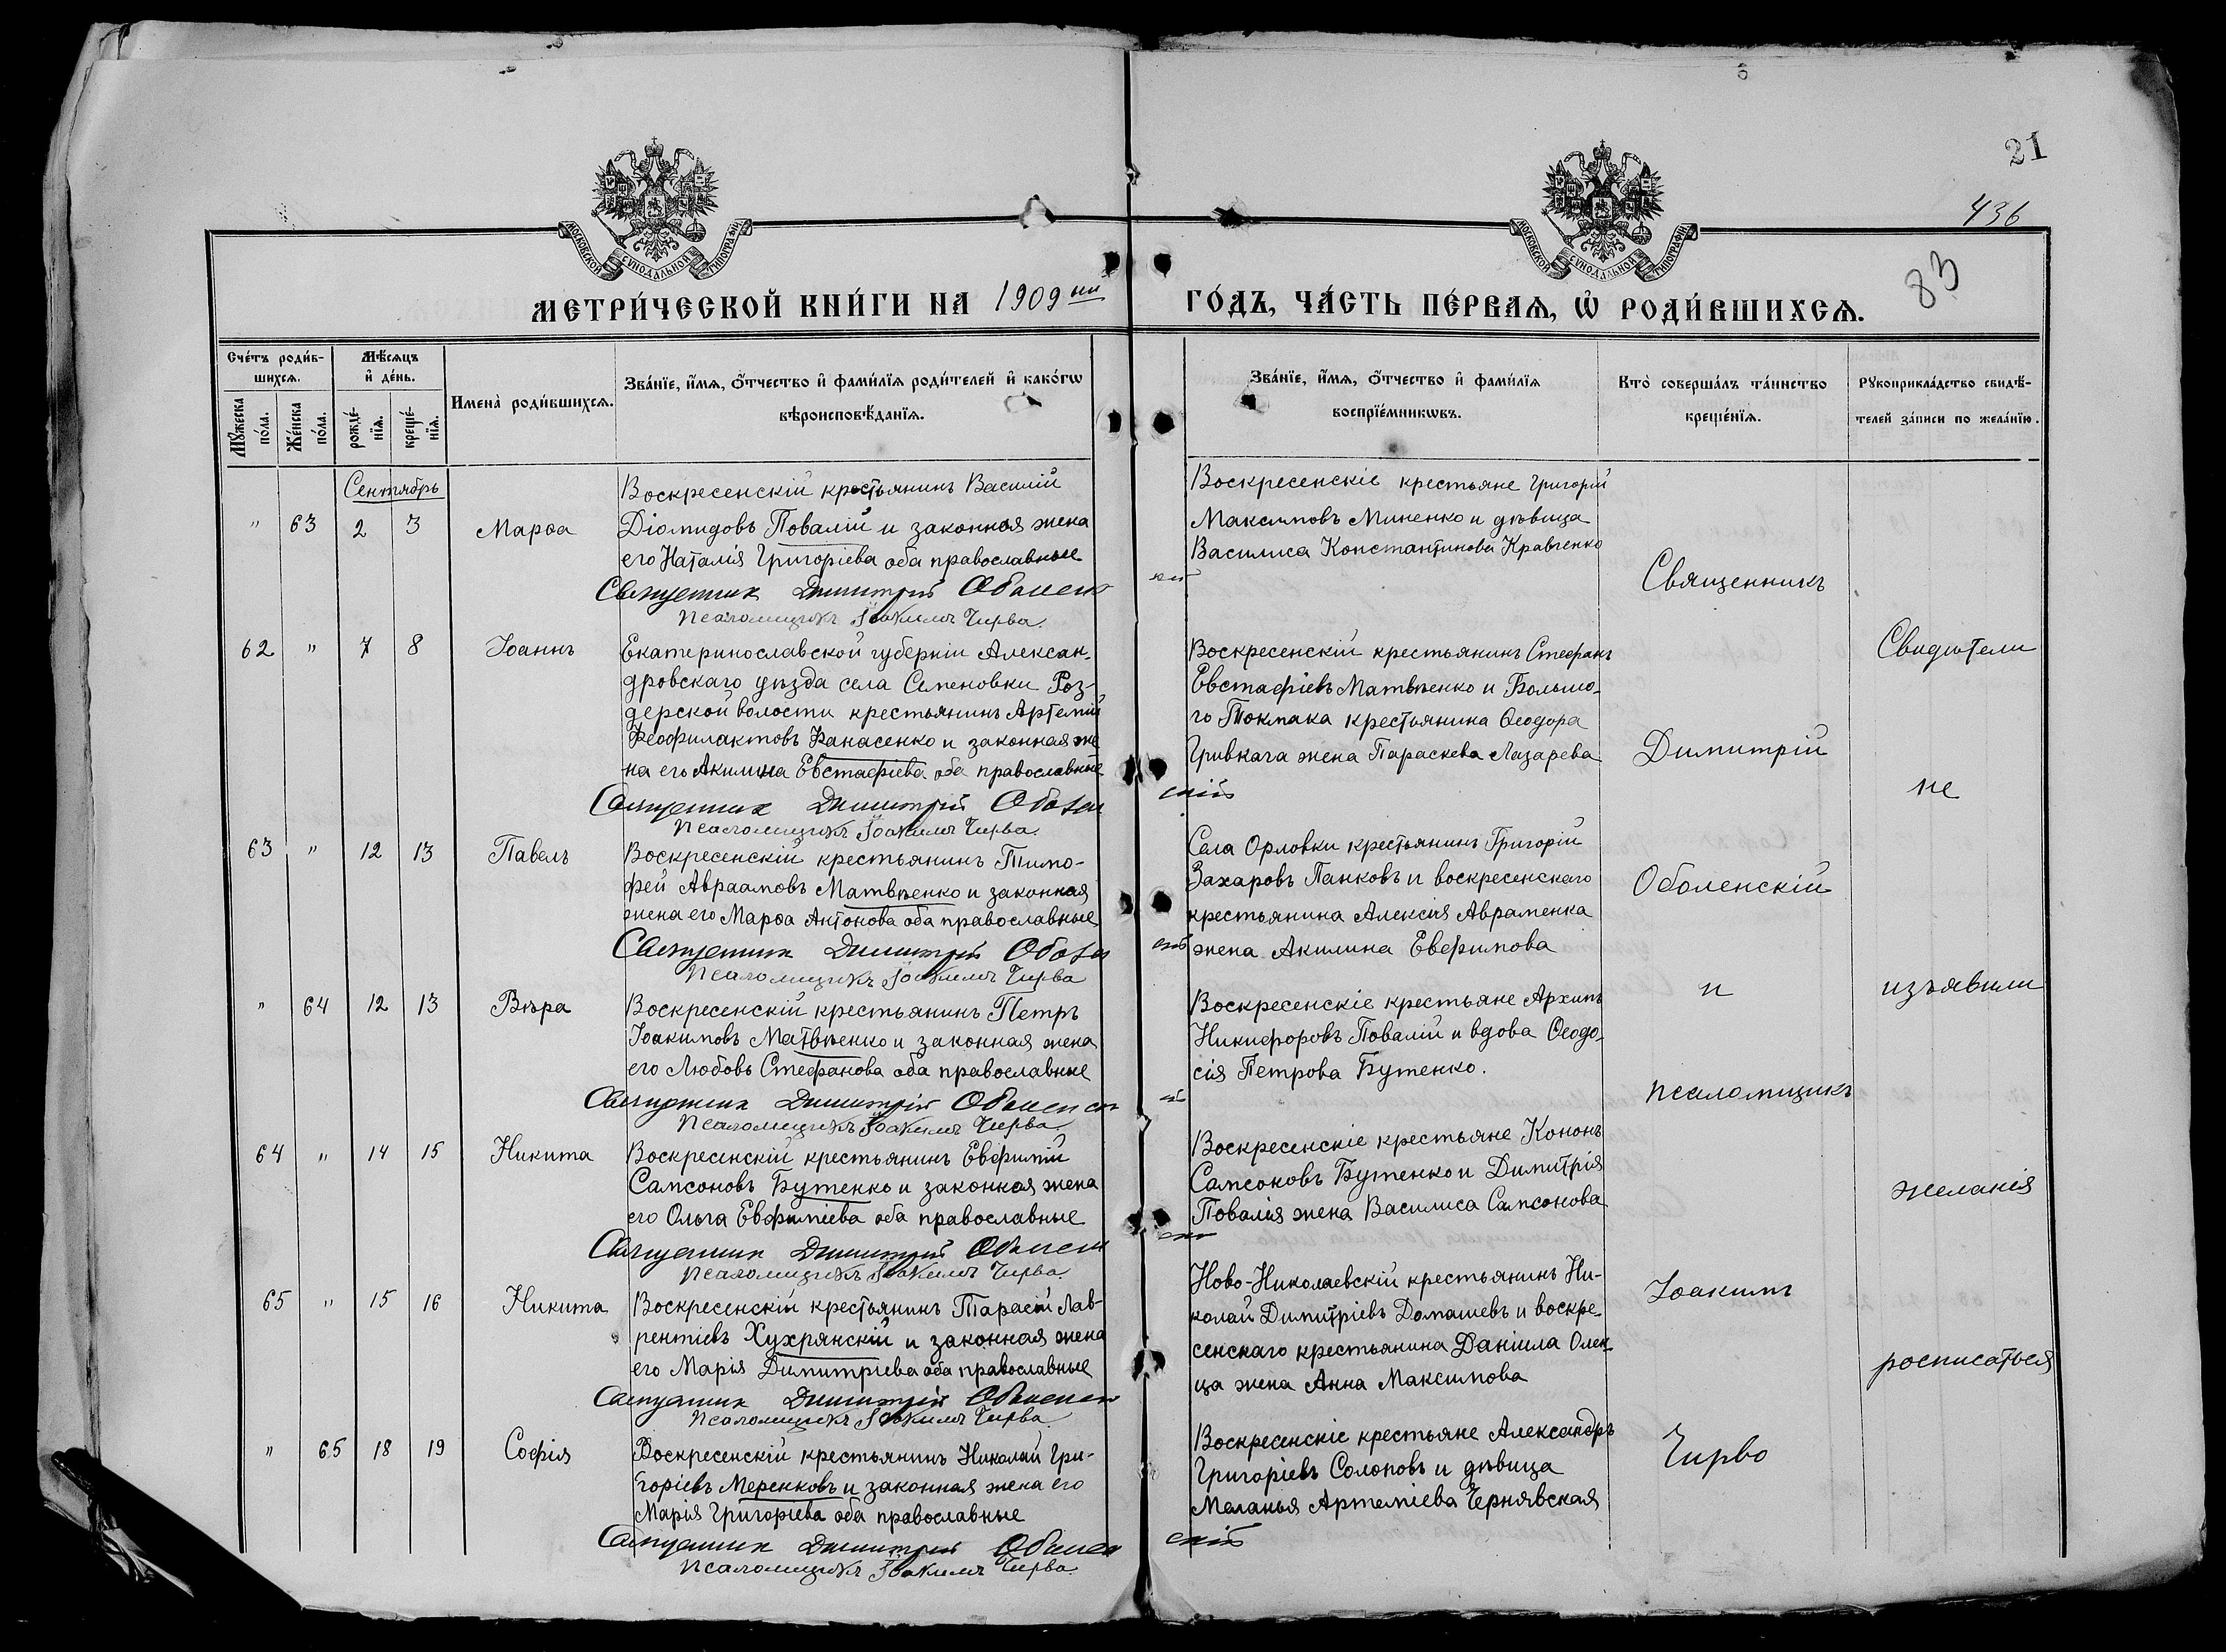 21
436
83
МОСКОВСКОЙ СѴНОДАЛЬНОЙ ТИПОГРАФІИ
МОСКОВСКОЙ СѴНОДАЛЬНОЙ ТИПОГРАФІИ
МЕТРИ́ЧЕСКОЙ КНИ́ГИ НА 1909 ый
ГО́ДЪ, ЧА́СТЬ ПЕ́РВАѦ, Ѡ҆ РОДИ́ВШИХСѦ.
Сче́тъ роди́в-
шихсѧ.
Мѣ́сѧцъ
и҆ де́нь.
Мꙋ́жеска
по́ла.
Же́нска
по́ла.
рожде́-
нїѧ.
креще́-
нїѧ.
Имена̀ роди́вшихсѧ.
Зва́нїе, и҆́мѧ, ѻ҆́тчество и҆ фами́лїѧ роди́телей и҆ како́гѡ
вѣроисповѣ́данїѧ.
Зва́нїе, и҆́мѧ, ѻ҆́тчество и҆ фами́лїѧ
воспрїе́мникѡвъ.
Кто̀ соверша́лъ та́инство
креще́нїѧ.
Рꙋкоприкла́дство свидѣ́-
телей за́писи по жела́нїю.
Сентябрь
" 63 2 3 Марѳа
Воскресенскій крестьянинъ Василій
Діомидовъ Повалій и законная жена
его Наталія Григоріева оба православные
Священник Димитрій Оболенскій
Псаломщикъ Іоакимъ Чирва
Воскресенскіе крестьяне Григорій
Максимовъ Миненко и дѣвица
Василиса Константинова Кравченко
62 " 7 8 Іоаннъ
Екатеринославской губерніи Алексан-
дровскаго уѣзда села Семеновки Роз-
дерской волости крестьянинъ Артемій
Феофилактовъ Панасенко и законная же
на его Акилина Евстафіева оба православные
Священник Димитрій Оболенскій
Псаломщикъ Іоакимъ Чирва
Воскресенскій крестьянинъ Стефанъ
Евстафіевъ Матвѣенко и Большо-
го Токмака крестьянина Ѳеодора
Гривкача жена Параскева Лазарева
63 " 12 13 Павелъ
Воскресенскій крестьянинъ Тимо-
фей Авраамовъ Матвѣенко и законная
жена его Марѳа Антонова оба православные
Священник Димитрій Оболенскій
Псаломщикъ Іоакимъ Чирва
Села Орловки крестьянинъ Григорій
Захаровъ Панковъ и воскресенскаго
крестьянина Алексія Авраменка
жена Акилина Евфимова
" 64 12 13 Вѣра
Воскресенскій крестьянинъ Петръ
Іоакимовъ Матвѣенко и законная жена
его Любовь Стефанова оба православные
Священник Димитрій Оболенскій
Псаломщикъ Іоакимъ Чирва
Воскресенскіе крестьяне Архипъ
Никифоровъ Повалій и вдова Ѳеодо-
сія Петрова Бутенко.
64 " 14 15 Никита
Воскресенскій крестьянинъ Евфимій
Самсоновъ Бутенко и законная жена
его Ольга Евфиміева оба православные
Священник Димитрій Оболенскій
Псаломщикъ Іоакимъ Чирва
Воскресенскіе крестьяне Кононъ
Самсоновъ Бутенко и Димитрія
Повалія жена Василиса Самсонова
65 " 15 16 Никита
Воскресенскій крестьянинъ Тарасій Лав-
рентіевъ Хухрянскій и законная жена
его Марія Димитріева оба православные
Священник Димитрій Оболенскій
Псаломщикъ Іоакимъ Чирва
Ново-Николаевскій крестьянинъ Ни-
колай Димитріевъ Домашевъ и воскре-
сенскаго крестьянина Даніила Олен-
ца жена Анна Максимова
" 65 18 19 Софія
Воскресенскій крестьянинъ Николай Гри-
горіевъ Меренковъ и законная жена его
Марія Григоріева оба православные
Священник Димитрій Оболенскій
Псаломщикъ Іоакимъ Чирва
Воскресенскіе крестьяне Александръ
Григоріевъ Солоповъ и дѣвица
Меланья Артеміева Чернявская
Священникъ
Димитрій
Оболенскій
и
псаломщикъ
Іоакимъ
Чирво
Свидѣтели
не
изъявили
желанія
росписаться